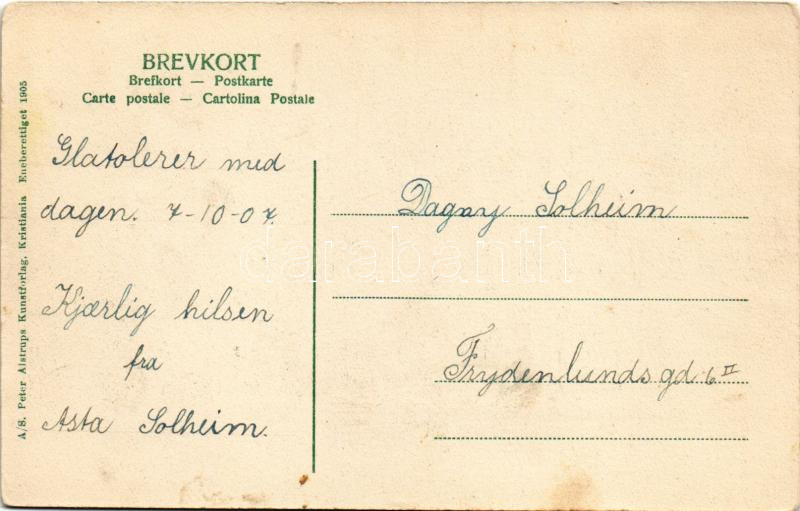 BREVKORT
Brefkort — Postkarte
Carte postale — Cartolina Postale
A/S. Peter Alstrups Kunstforlag, Kristiania Eneberettiget 1905
Glatolerer med
dagen. 7-10-07.
Kjærlig hilsen
fra
Asta Solheim.
Dagny Solheim
Frydenlunds gd. 6 II
darabanth